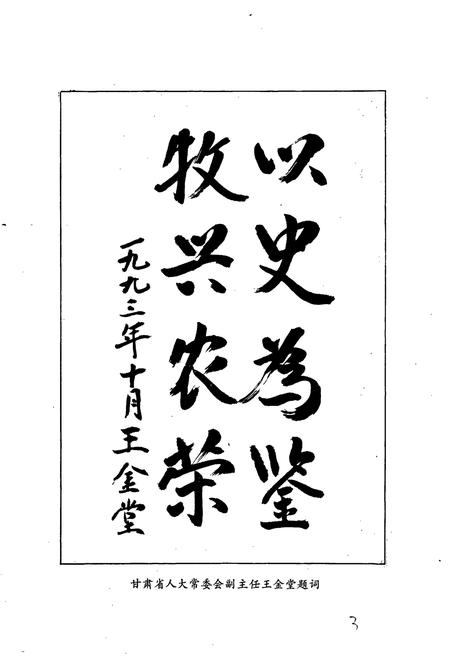 以史為鉴
牧兴农荣
一九九三年十月王金堂
甘肃省人大常委会副主任王金堂题词
3